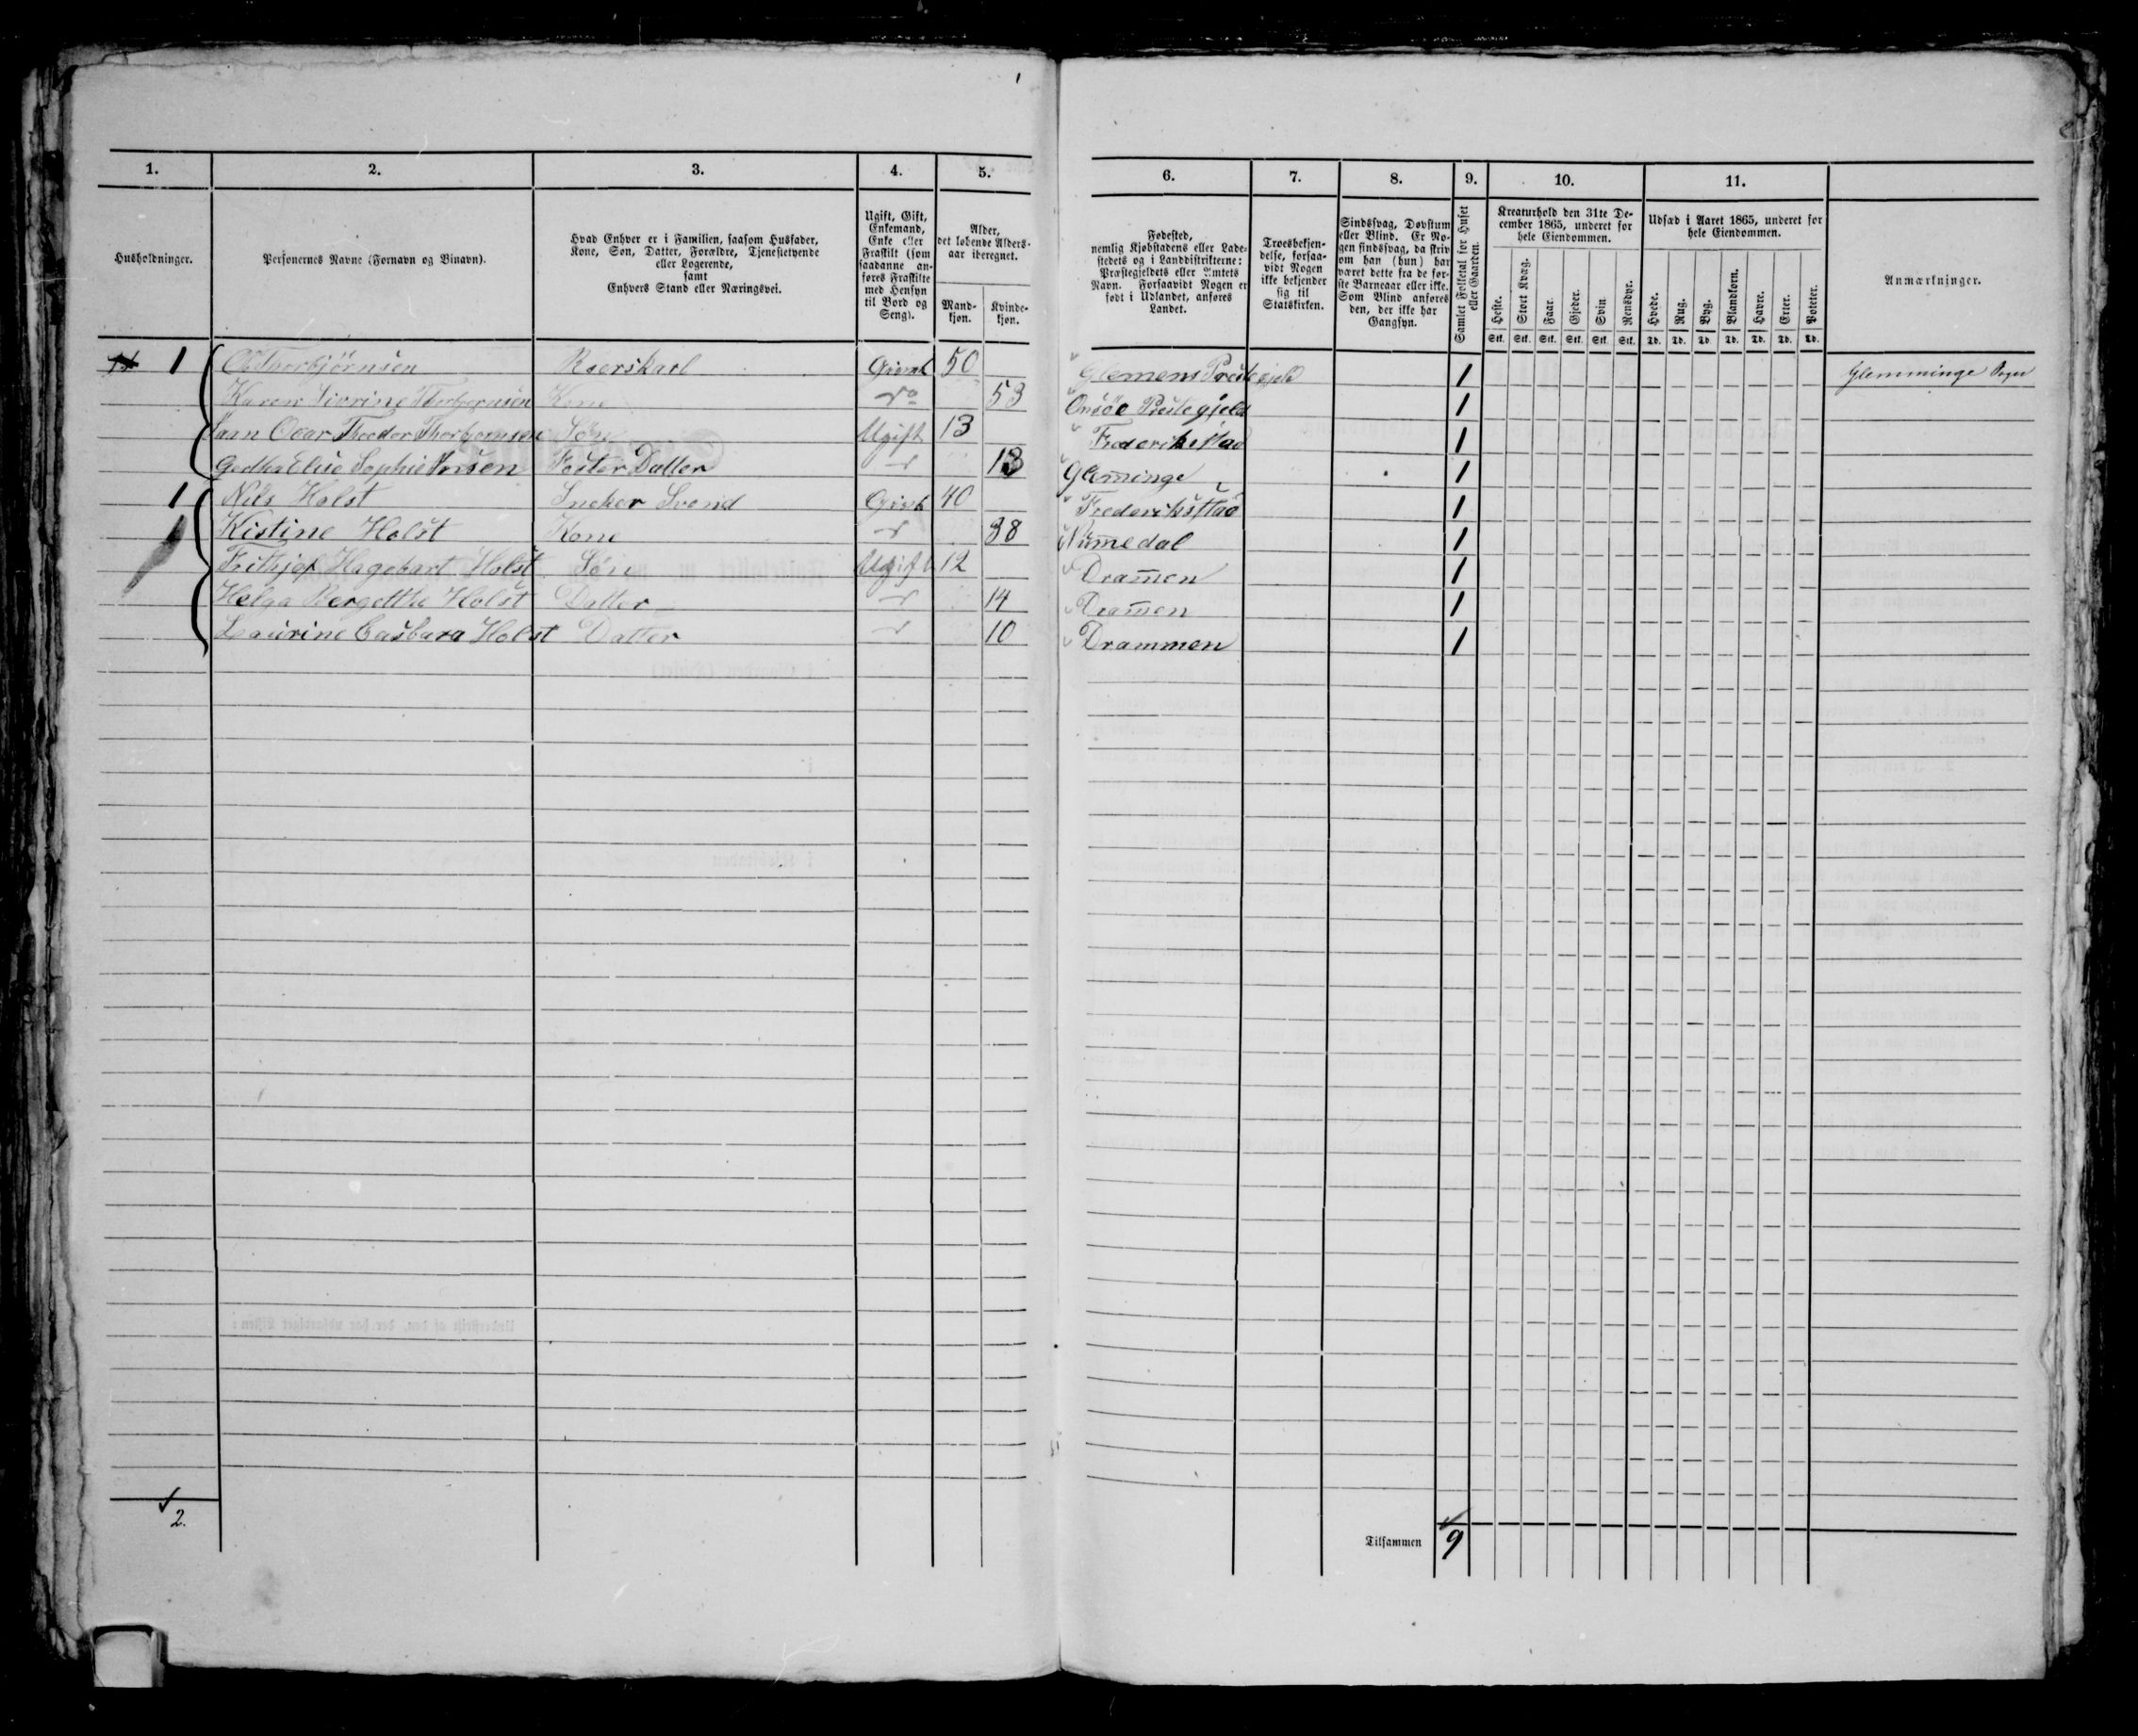 1. 2. 3. 4. 5. 6. 7. 8. 9. 10. 11.
Husholdninger.
Personernes Navne (Fornavn og Binavn).
Hvad Enhver er i Familien, saasom Husfader,
Kone, Søn, Datter, Forældre, Tjenestetyende
eller Logerende,
samt
Enhvers Stand eller Næringsvei.
Ugift, Gift,
Enkemand,
Enke eller
Fraskilt (som
saadanne an-
føres Fraskilte
med Hensyn
til Bord og
Seng).
Alder,
det løbende Alders-
aar iberegnet.
Mand-
kjøn.
Kvinde-
kjøn.
Fødested,
nemlig Kjøbstadens eller Lade-
stedets og i Landdistrikterne:
Præstegjeldets eller Amtets
Navn. Forsaavidt Nogen er
født i Udlandet, anføres
Landet.
Troesbekjen-
delse, forsaa-
vidt Nogen
ikke bekjender
sig til
Statskirken.
Sindssvag, Døvstum
eller Blind. Er No-
gen sindssvag, da skriv
om han (hun) har
været dette fra de før-
ste Barneaar eller ikke.
Som Blind anføres
den, der ikke har
Gangsyn.
Samlet Folketal for Huset
eller Gaarden.
Kreaturhold den 31te De-
cember 1865, underet for
hele Eiendommen.
Heste. Stort Kvæg. Faar. Gjeder. Svin. Rensdyr.
Stk. Stk. Stk. Stk. Stk. Stk.
Udsæd i Aaret 1865, underet for
hele Eiendommen.
Hvede. Rug. Byg. Blandkorn. Havre. Erter. Poteter.
Td. Td. Td. Td. Td. Td. Td.
Anmærkninger.
1 Thorbjørnsen Givt 50 Glemens Prestegjeld 1 Glemminge Sogn
Karen Thorbjørnsen Kone do 53 Onsöe Prestegjeld 1
Theodor Thorbjørnsen Søn Ugift 13 Frederikstad 1
Elise Sophie Foster Datter 13 Gleminge 1
1 Nils Holst Sneker Svend Givt 40 Frederikstad 1
Kistine Holst Kone 38 Numedal 1
Frithjof Hagebart Holst Søn Ugift 12 Dramen 1
Helga Bergette Holst Datter 14 Dramen 1
Laurine Casbara Holst Datter 10 Drammen 1
2.
Tilsammen 9